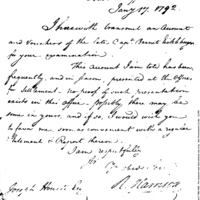 Jany 17. 1792
I herewith transmit an Account
and Vouchers of the late Capt.
for your examination.
This Account I am told has been
frequently, and in person, presented at the Office
for Settlement. no proof of such presentation
exists in this office. possibly there may be
some in yours, and if so, I would wish you
to favor me soon as convenient with a regular
Statement & Report thereon.
I am respectfully
Sir
R. Harrison
Joseph Howell Esq